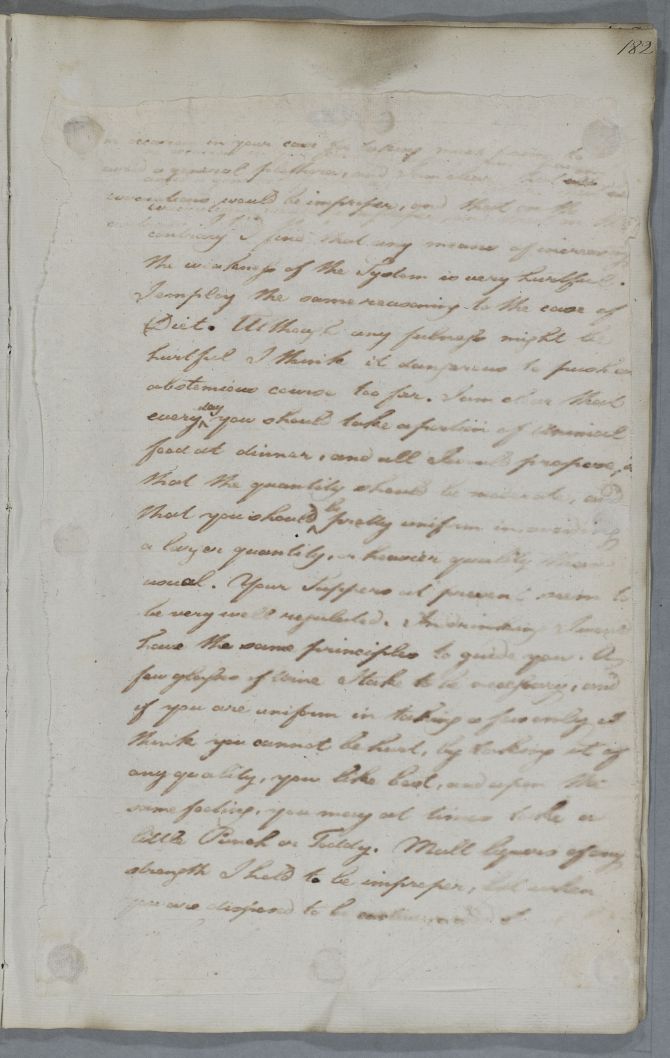 182
in your case for taking much
a general plethora, and I am clear that
evacuations would be improper, and that on the
contrary I find that any means of increasing
the weakness of the System is very hurtful.
I employ the same reasoning to the case of
Diet. Although any fulness might be
hurtful I think it dangerous to push an
abstemious course too far. I am clear that
every day you should take a portion of Animal
food at dinner, and all I would propose, is
that the quantity should be moderate, and
that you should be pretty uniform in avoiding
a larger quantity, or heavier quality than
usual. Your Suppers at present seem to
be very well regulated. In drinking I would
have the same principles to guide you. A
few glasses of wine I take to be necessary, and
if you are uniform in taking a few only I
think you cannot be hurt, by taking it of
any quality, you like best, and upon the
same footing, you may at times take a
little Punch or Toddy. Malt liquors of any
strength I hold to be improper, but when
you are disposed to be